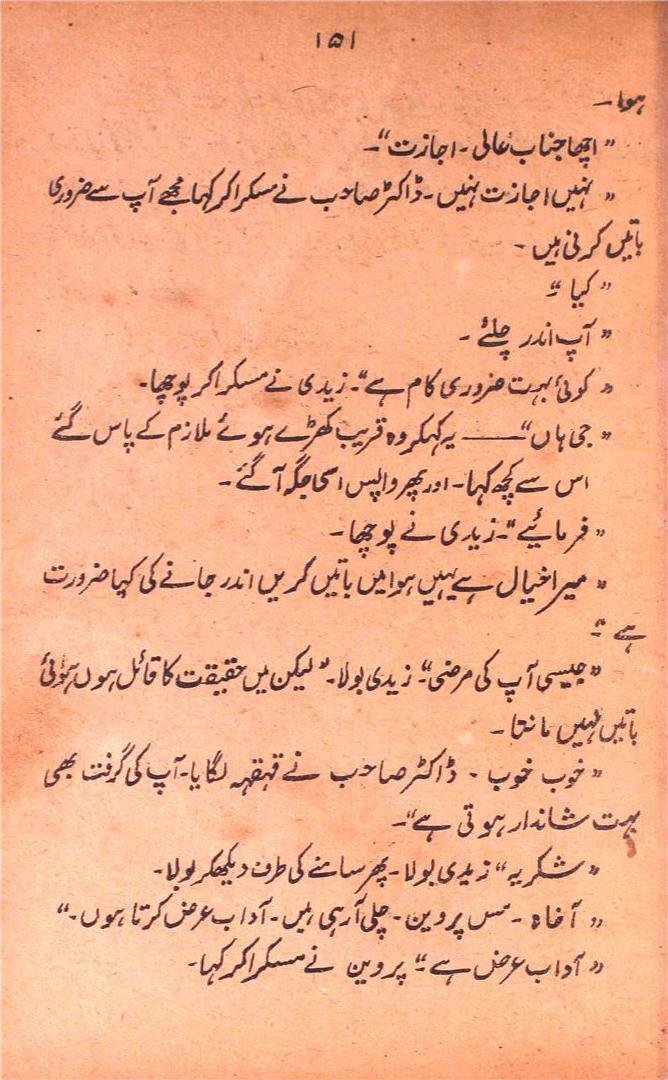 ۱۵۱
ہوا ۔
" اچھا جناب عالی ۔ اجازت "۔
" نہیں اجازت نہیں ۔ ڈاکٹر صاحب نے مسکرا کر کہا مجھے آپ سے ضروری
باتیں کرنی ہیں ۔
" کیا "۔
" آپ اندر چلئے ۔
" کوئی بہت ضروری کام ہے "۔ زیدی نے مسکرا کر پوچھا۔
" جی ہاں " ــــــ یہ کہکر وہ قریب کھڑے ہوئے ملازم کے پاس گئے
اس سے کچھ کہا ۔ اور پھر واپس اسی جگہ آ گئے ۔
" فرمائیے "۔ زیدی نے پوچھا ۔
" میرا خیال ہے یہیں ہوا میں باتیں کریں اندر جانے کی کیا ضرورت
ہے "۔
" جیسی آپ کی مرضی "۔ زیدی بولا ۔ " لیکن میں حقیقت کا قائل ہوں ہوائی
باتیں نہیں مانتا ۔
" خوب خوب ۔ ڈاکٹر صاحب نے قہقہہ لگایا ۔ آپ کی گرفت بھی
بہت شاندار ہوتی ہے "۔
" شکریہ " زیدی بولا ۔ پھر سامنے کی طرف دیکھکر بولا ۔
" آخاہ ۔ مس پروین ۔ چلی آرہی ہیں ۔ آداب عرض کرتا ہوں ۔ "
" آداب عرض ہے "۔ پروین نے مسکرا کر کہا ۔